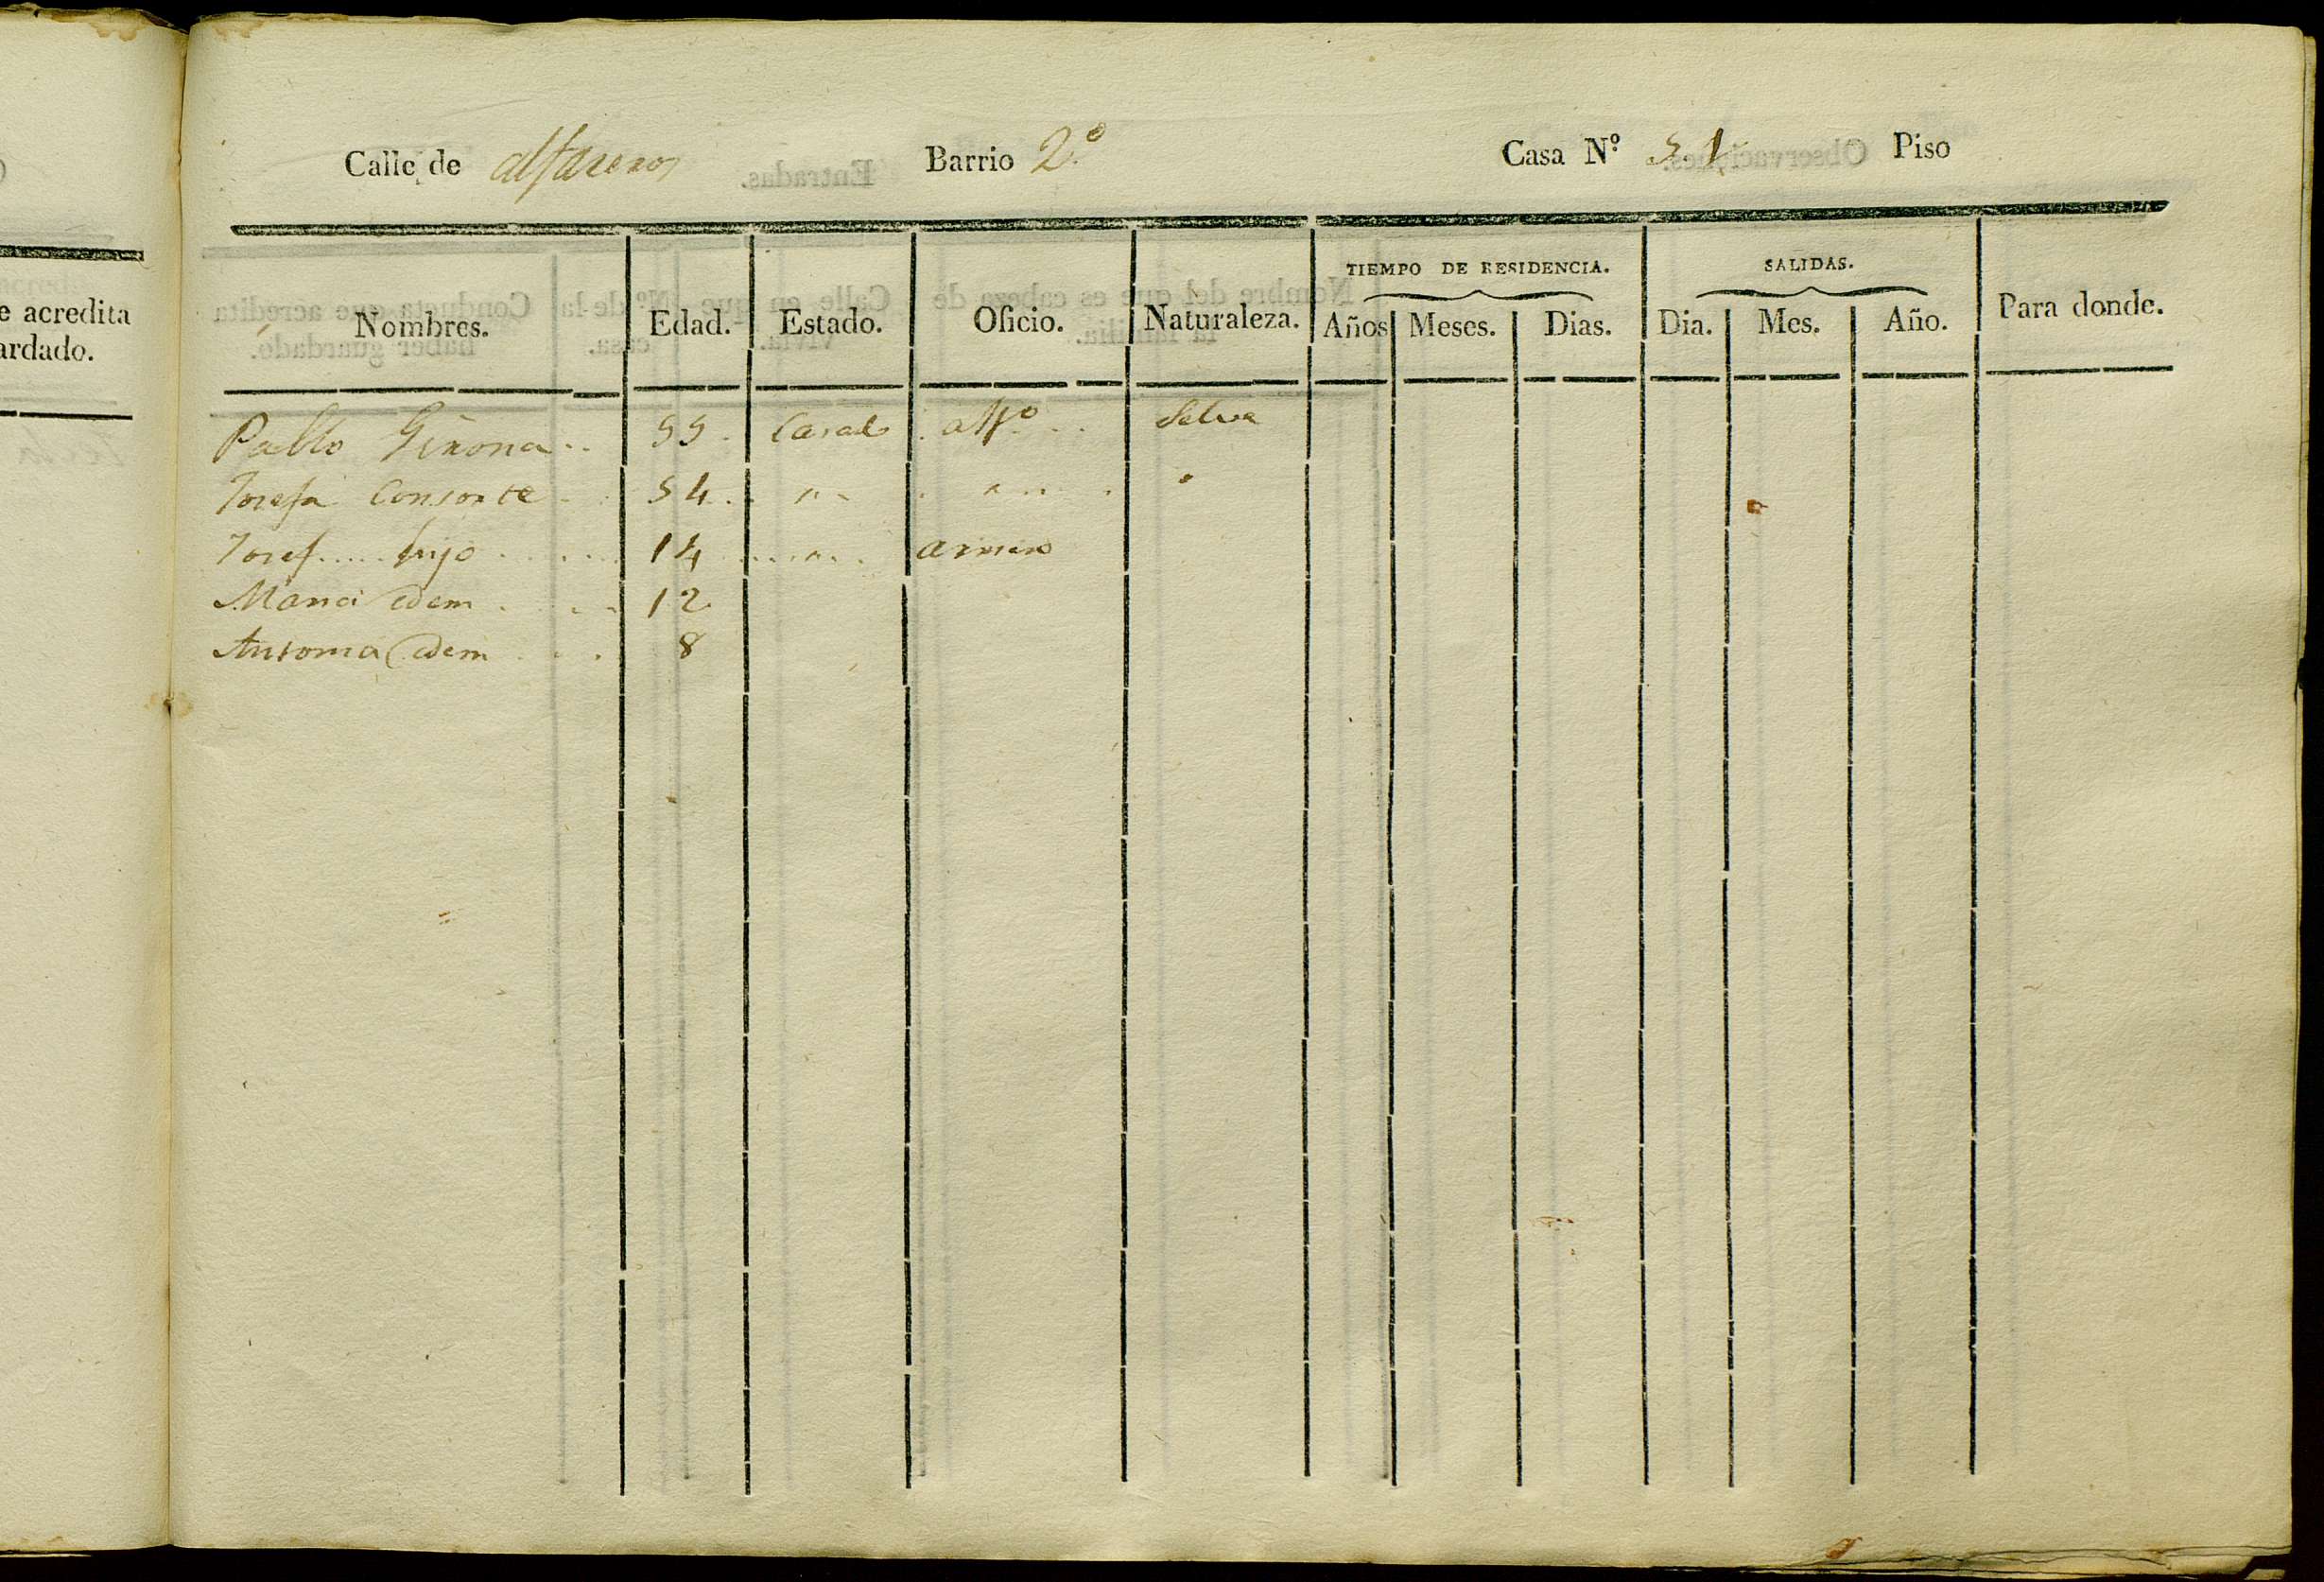 Calle de alfareros Barrio 2.º Casa N.º 51 Piso
TIEMPO DE RESIDENCIA. SALIDAS.
Nombres. Edad. Estado. Oficio. Naturaleza. Años Meses. Dias. Dia. Mes. Año. Para donde.
Pablo Girona .. 55 . Casad . alfº .. Selva
Josefa Consorte . 54 .
Josef ..... hijo ..... 14
Maria idem .... 12
Antonia idem ... 8
e acredita
ardado.